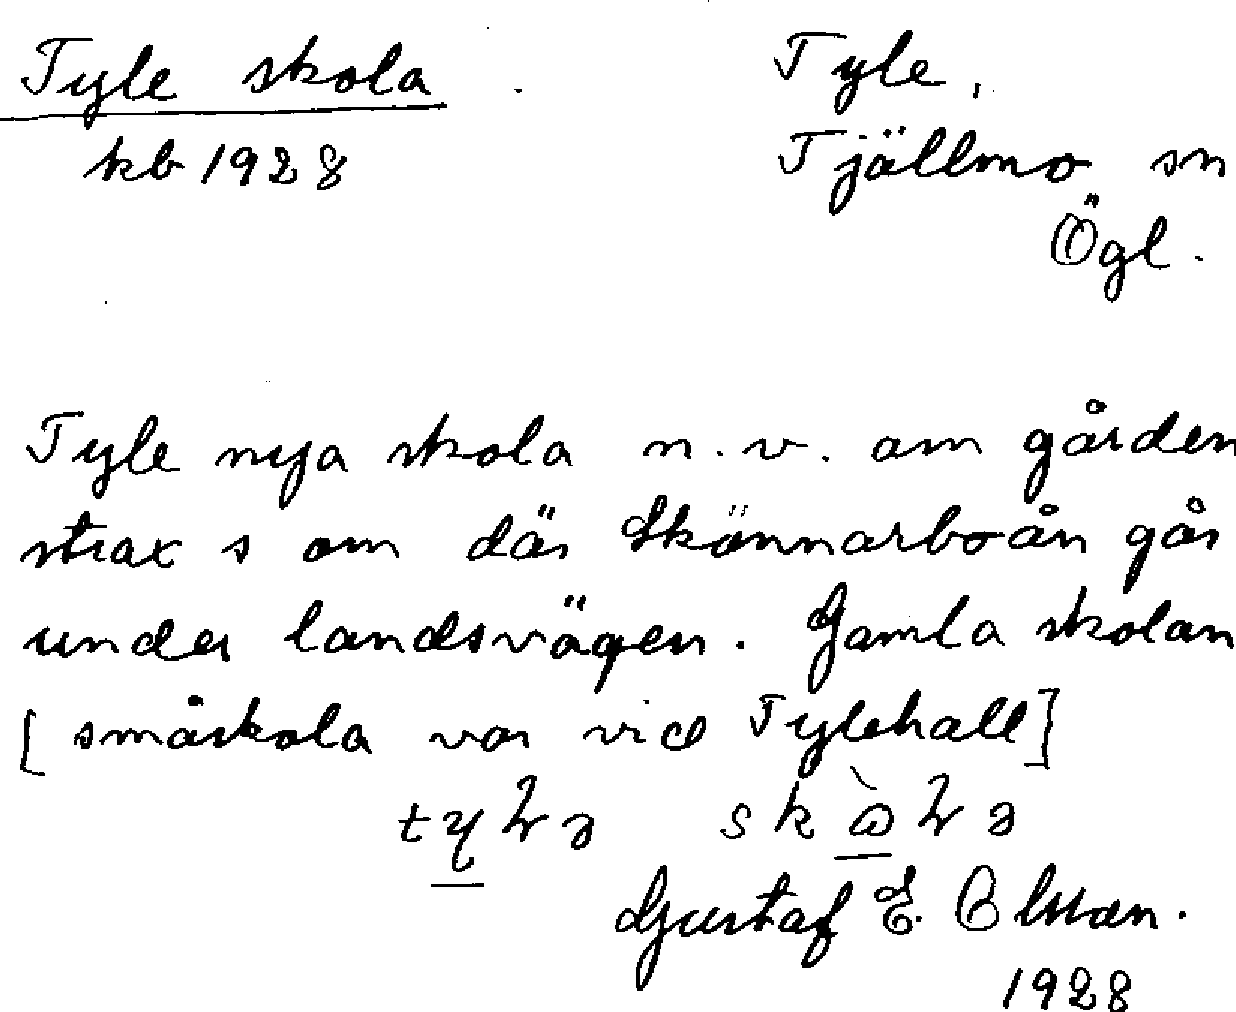 Tyle skola
kb 1928
Tyle,
Tjällmo sn
Ögl.
Tyle nya skola n.v. om gården
strax s om där Skönnarboån går
under landsvägen. Gamla skolan
[småskola var vid Tylehall]
Gustaf E. Olsson.
1928